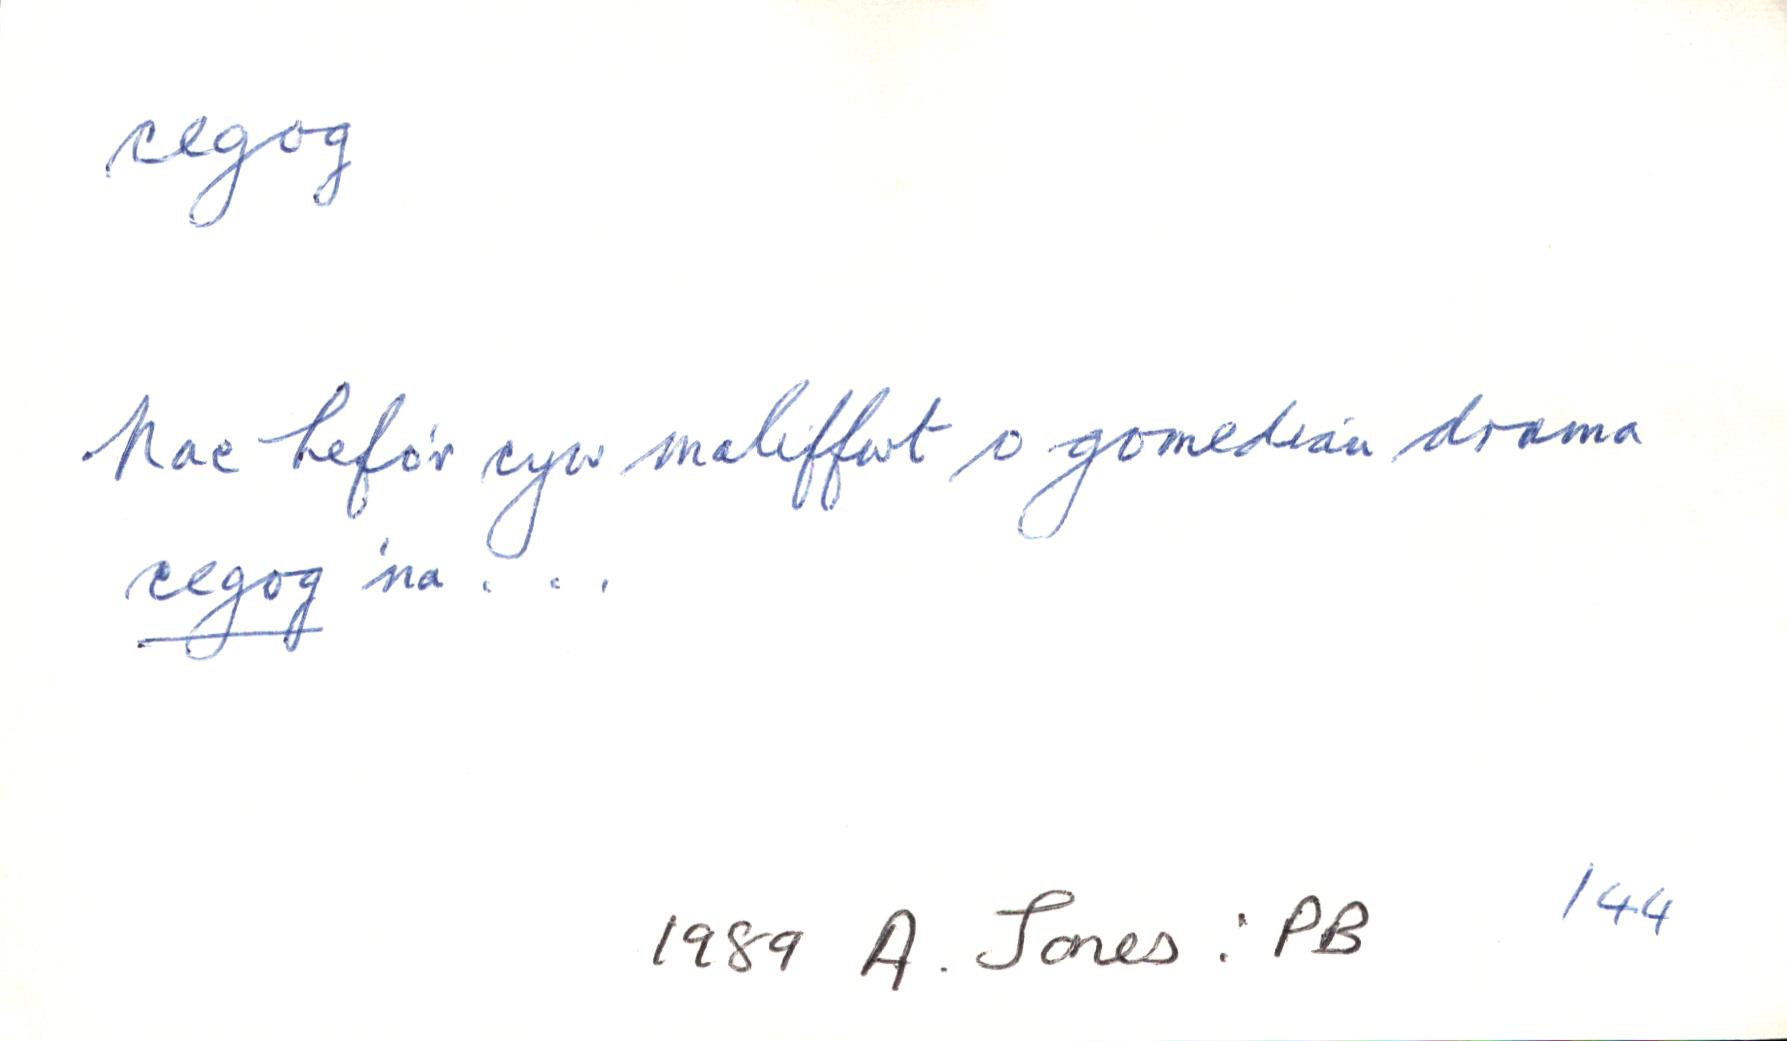 cegog
Nac hefo'r cyw maliffwt o gomedïan drama
cegog 'na . . .
1989 A. Jones : PB 144